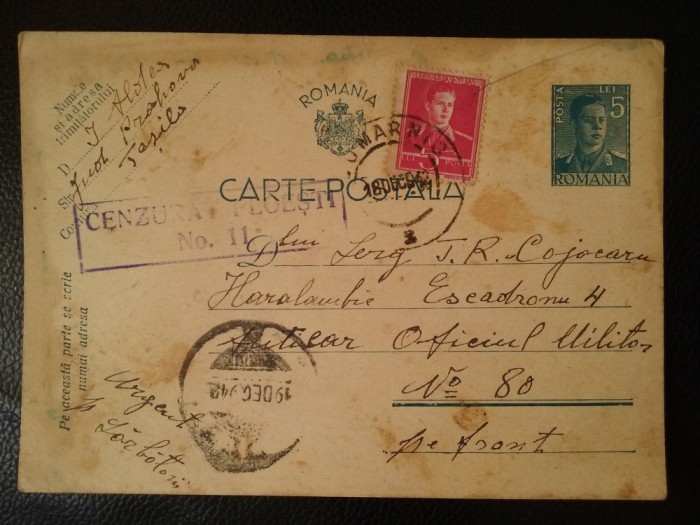 Numele
și adresa
trimițătorului
D. I. Aldea
Jud. Prahova
ROMANIA
POSTA LEI 5
ROMANIA
LEI 5
COMARNIC
18 DEC 942
2
CARTE POSTALIA
CENZURAT PLOEȘTI
No. 11
Dlui Serg T.R. Cojocaru
Haralambie Escadronu 4
Anticar Oficiul Militar
No 80
pe front
Pe această parte se scrie
numai adresa
19 DEC 942
Urgent
p Sărbători